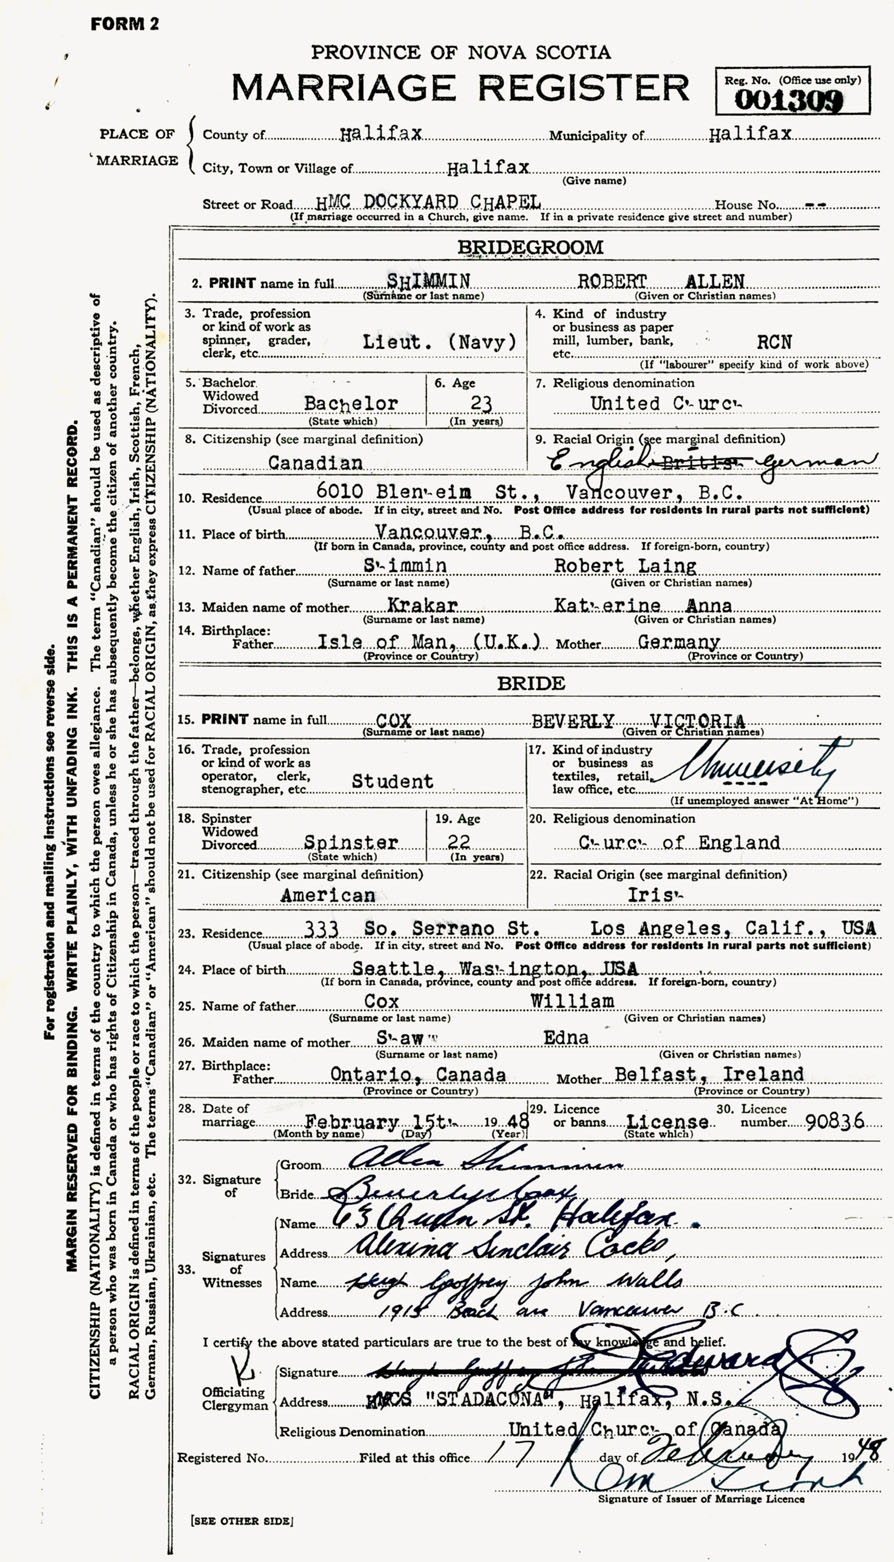 FORM 2
PROVINCE OF NOVA SCOTIA
MARRIAGE REGISTER
Reg. No. (Office use only)
001309
PLACE OF MARRIAGE
County of Halifax Municipality of Halifax
City, Town or Village of Halifax
(Give name)
Street or Road HMC DOCKYARD CHAPEL House No. --
(If marriage occurred in a Church, give name. If in a private residence give street and number)
BRIDEGROOM
2. PRINT name in full SHIMMIN ROBERT ALLEN
(Surname or last name) (Given or Christian names)
3. Trade, profession or kind of work as spinner, grader, clerk, etc. Lieut. (Navy)
4. Kind of industry or business as paper mill, lumber, bank, etc. RCN
(If "labourer" specify kind of work above)
5. Bachelor Widowed Divorced Bachelor
(State which)
6. Age 23
(In years)
7. Religious denomination
United Church
8. Citizenship (see marginal definition)
Canadian
9. Racial Origin (see marginal definition)
English British German
10. Residence 6010 Blenheim St., Vancouver, B.C.
(Usual place of abode. If in city, street and No. Post Office address for residents in rural parts not sufficient)
11. Place of birth Vancouver, B.C.
(If born in Canada, province, county and post office address. If foreign-born, country)
12. Name of father Shimmin Robert Laing
(Surname or last name) (Given or Christian names)
13. Maiden name of mother Krakar Katherine Anna
(Surname or last name) (Given or Christian names)
14. Birthplace: Father Isle of Man, (U.K.) Mother Germany
(Province or Country) (Province or Country)
BRIDE
15. PRINT name in full COX BEVERLY VICTORIA
(Surname or last name) (Given or Christian names)
16. Trade, profession or kind of work as operator, clerk, stenographer, etc. Student
17. Kind of industry or business as textiles, retail, law office, etc. University
(If unemployed answer "At Home")
18. Spinster Widowed Divorced Spinster
(State which)
19. Age 22
(In years)
20. Religious denomination
Church of England
21. Citizenship (see marginal definition)
American
22. Racial Origin (see marginal definition)
Irish
23. Residence 333 So. Serrano St. Los Angeles, Calif., USA
(Usual place of abode. If in city, street and No. Post Office address for residents in rural parts not sufficient)
24. Place of birth Seattle, Washington, USA
(If born in Canada, province, county and post office address. If foreign-born, country)
25. Name of father Cox William
(Surname or last name) (Given or Christian names)
26. Maiden name of mother Shaw Edna
(Surname or last name) (Given or Christian names)
27. Birthplace: Father Ontario, Canada Mother Belfast, Ireland
(Province or Country) (Province or Country)
28. Date of marriage February 15th 1948
(Month by name) (Day) (Year)
29. Licence or banns License
(State which)
30. Licence number 90836
32. Signature of
Groom Allen Shimmin
Bride Beverly Cox
33. Signatures of Witnesses
Name 63 Queen St. Halifax.
Address Alexina Sinclair Cocks,
Name Hugh Geoffrey John Walls
Address 1915 Beach ave Vancouver B.C.
I certify the above stated particulars are true to the best of my knowledge and belief.
Officiating Clergyman
Signature
Address HMCS "STADACONA", Halifax, N.S.
Religious Denomination United Church of Canada
Registered No. Filed at this office 17 day of February 1948
Signature of Issuer of Marriage Licence
[SEE OTHER SIDE]
For registration and mailing instructions see reverse side.
MARGIN RESERVED FOR BINDING. WRITE PLAINLY, WITH UNFADING INK. THIS IS A PERMANENT RECORD.
CITIZENSHIP (NATIONALITY) is defined in terms of the country to which the person owes allegiance. The term "Canadian" should be used as descriptive of
a person who was born in Canada or who has rights of Citizenship in Canada, unless he or she has subsequently become the citizen of another country.
RACIAL ORIGIN is defined in terms of the people or race to which the person—traced through the father—belongs, whether English, Irish, Scottish, French,
German, Russian, Ukrainian, etc. The terms "Canadian" or "American" should not be used for RACIAL ORIGIN, as they express CITIZENSHIP (NATIONALITY).